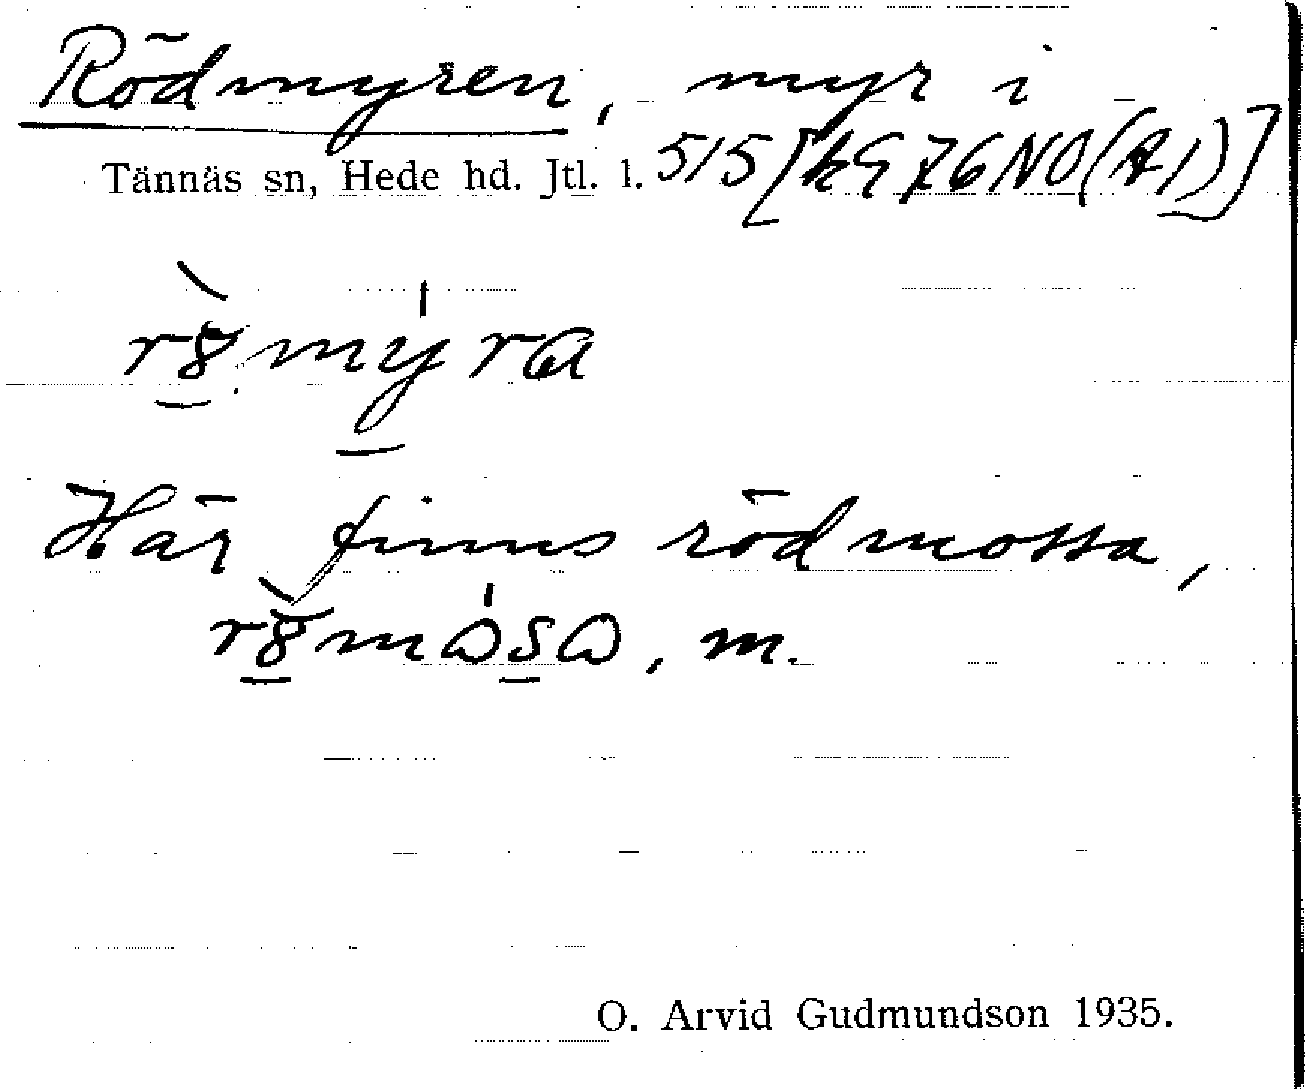 Rödmyren, myr i
Tännäs sn, Hede hd. Jtl. l. 515 [kg 76 NO (A1)]
Här finns rödmossa,
m.
O. Arvid Gudmundson 1935.